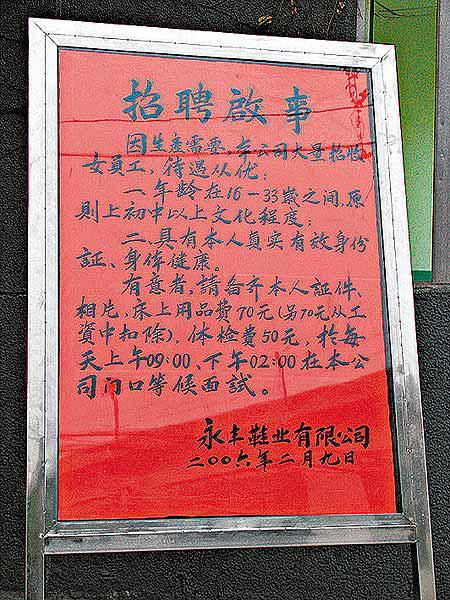 招聘啟事
因生産需要，本公司大量招收
女員工，待遇从优：
一、年龄在16－33歲之间，原
則上初中以上文化程度；
二、具有本人真实有效身份
証、身体健康。
有意者，請备齐本人証件、
相片，床上用品费70元(另70元从工
資中扣除)，体检费50元，於每
天上午09:00、下午02:00在本公
司门口等候面試。
永丰鞋业有限公司
二〇〇六年二月九日